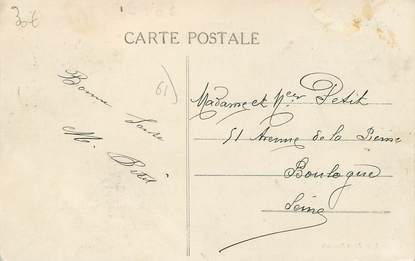 30€
CARTE POSTALE
61)
Bonne Santé
M. Petit
Madame et Mr Petit
51 Avenue de la Reine
Boulogne
Seine